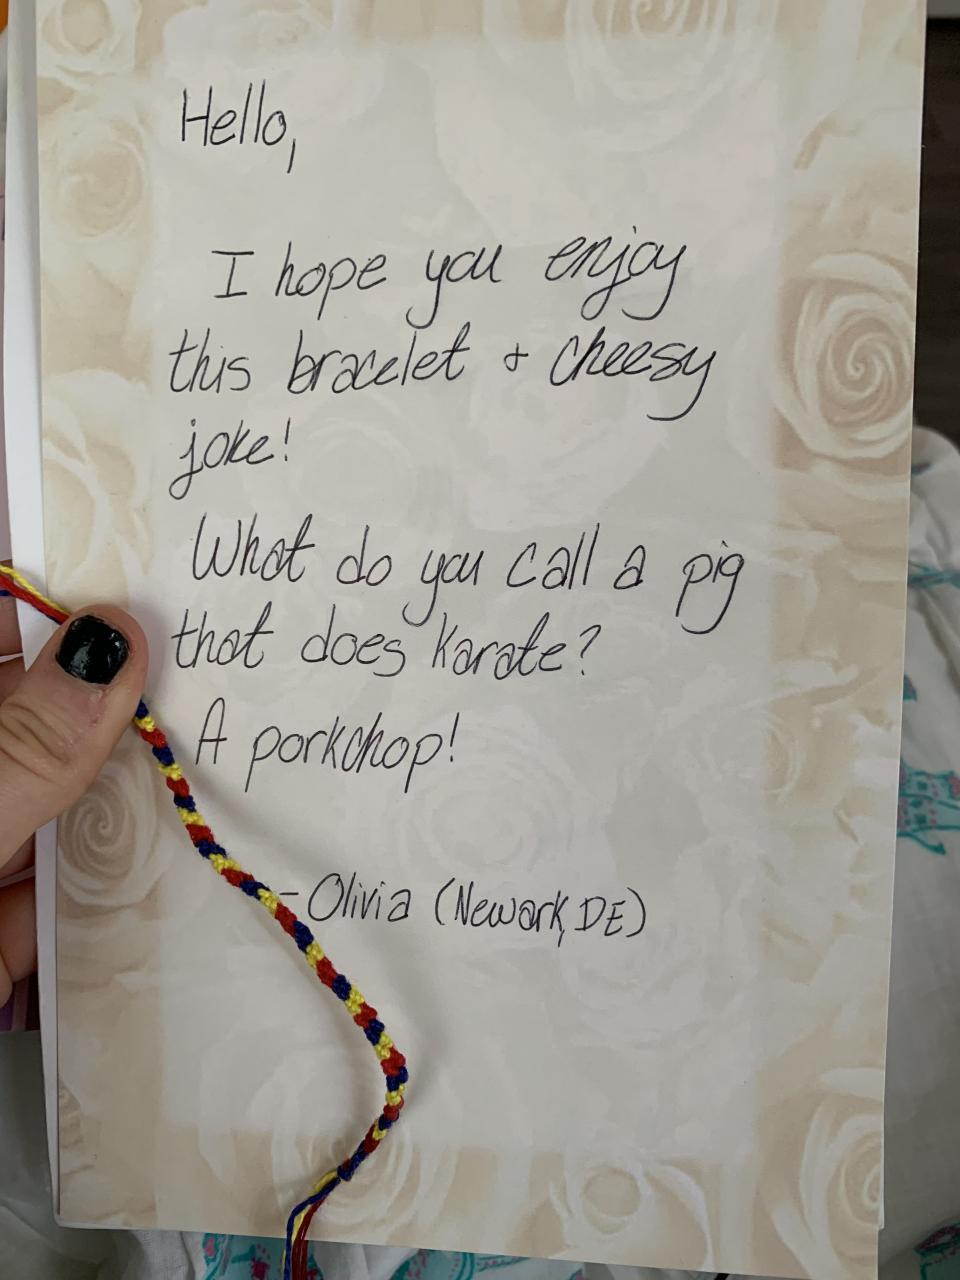 Hello,
I hope you enjoy
this bracelet + cheesy
joke!
What do you call a pig
that does karate?
A porkchop!
-Olivia (Newark, DE)